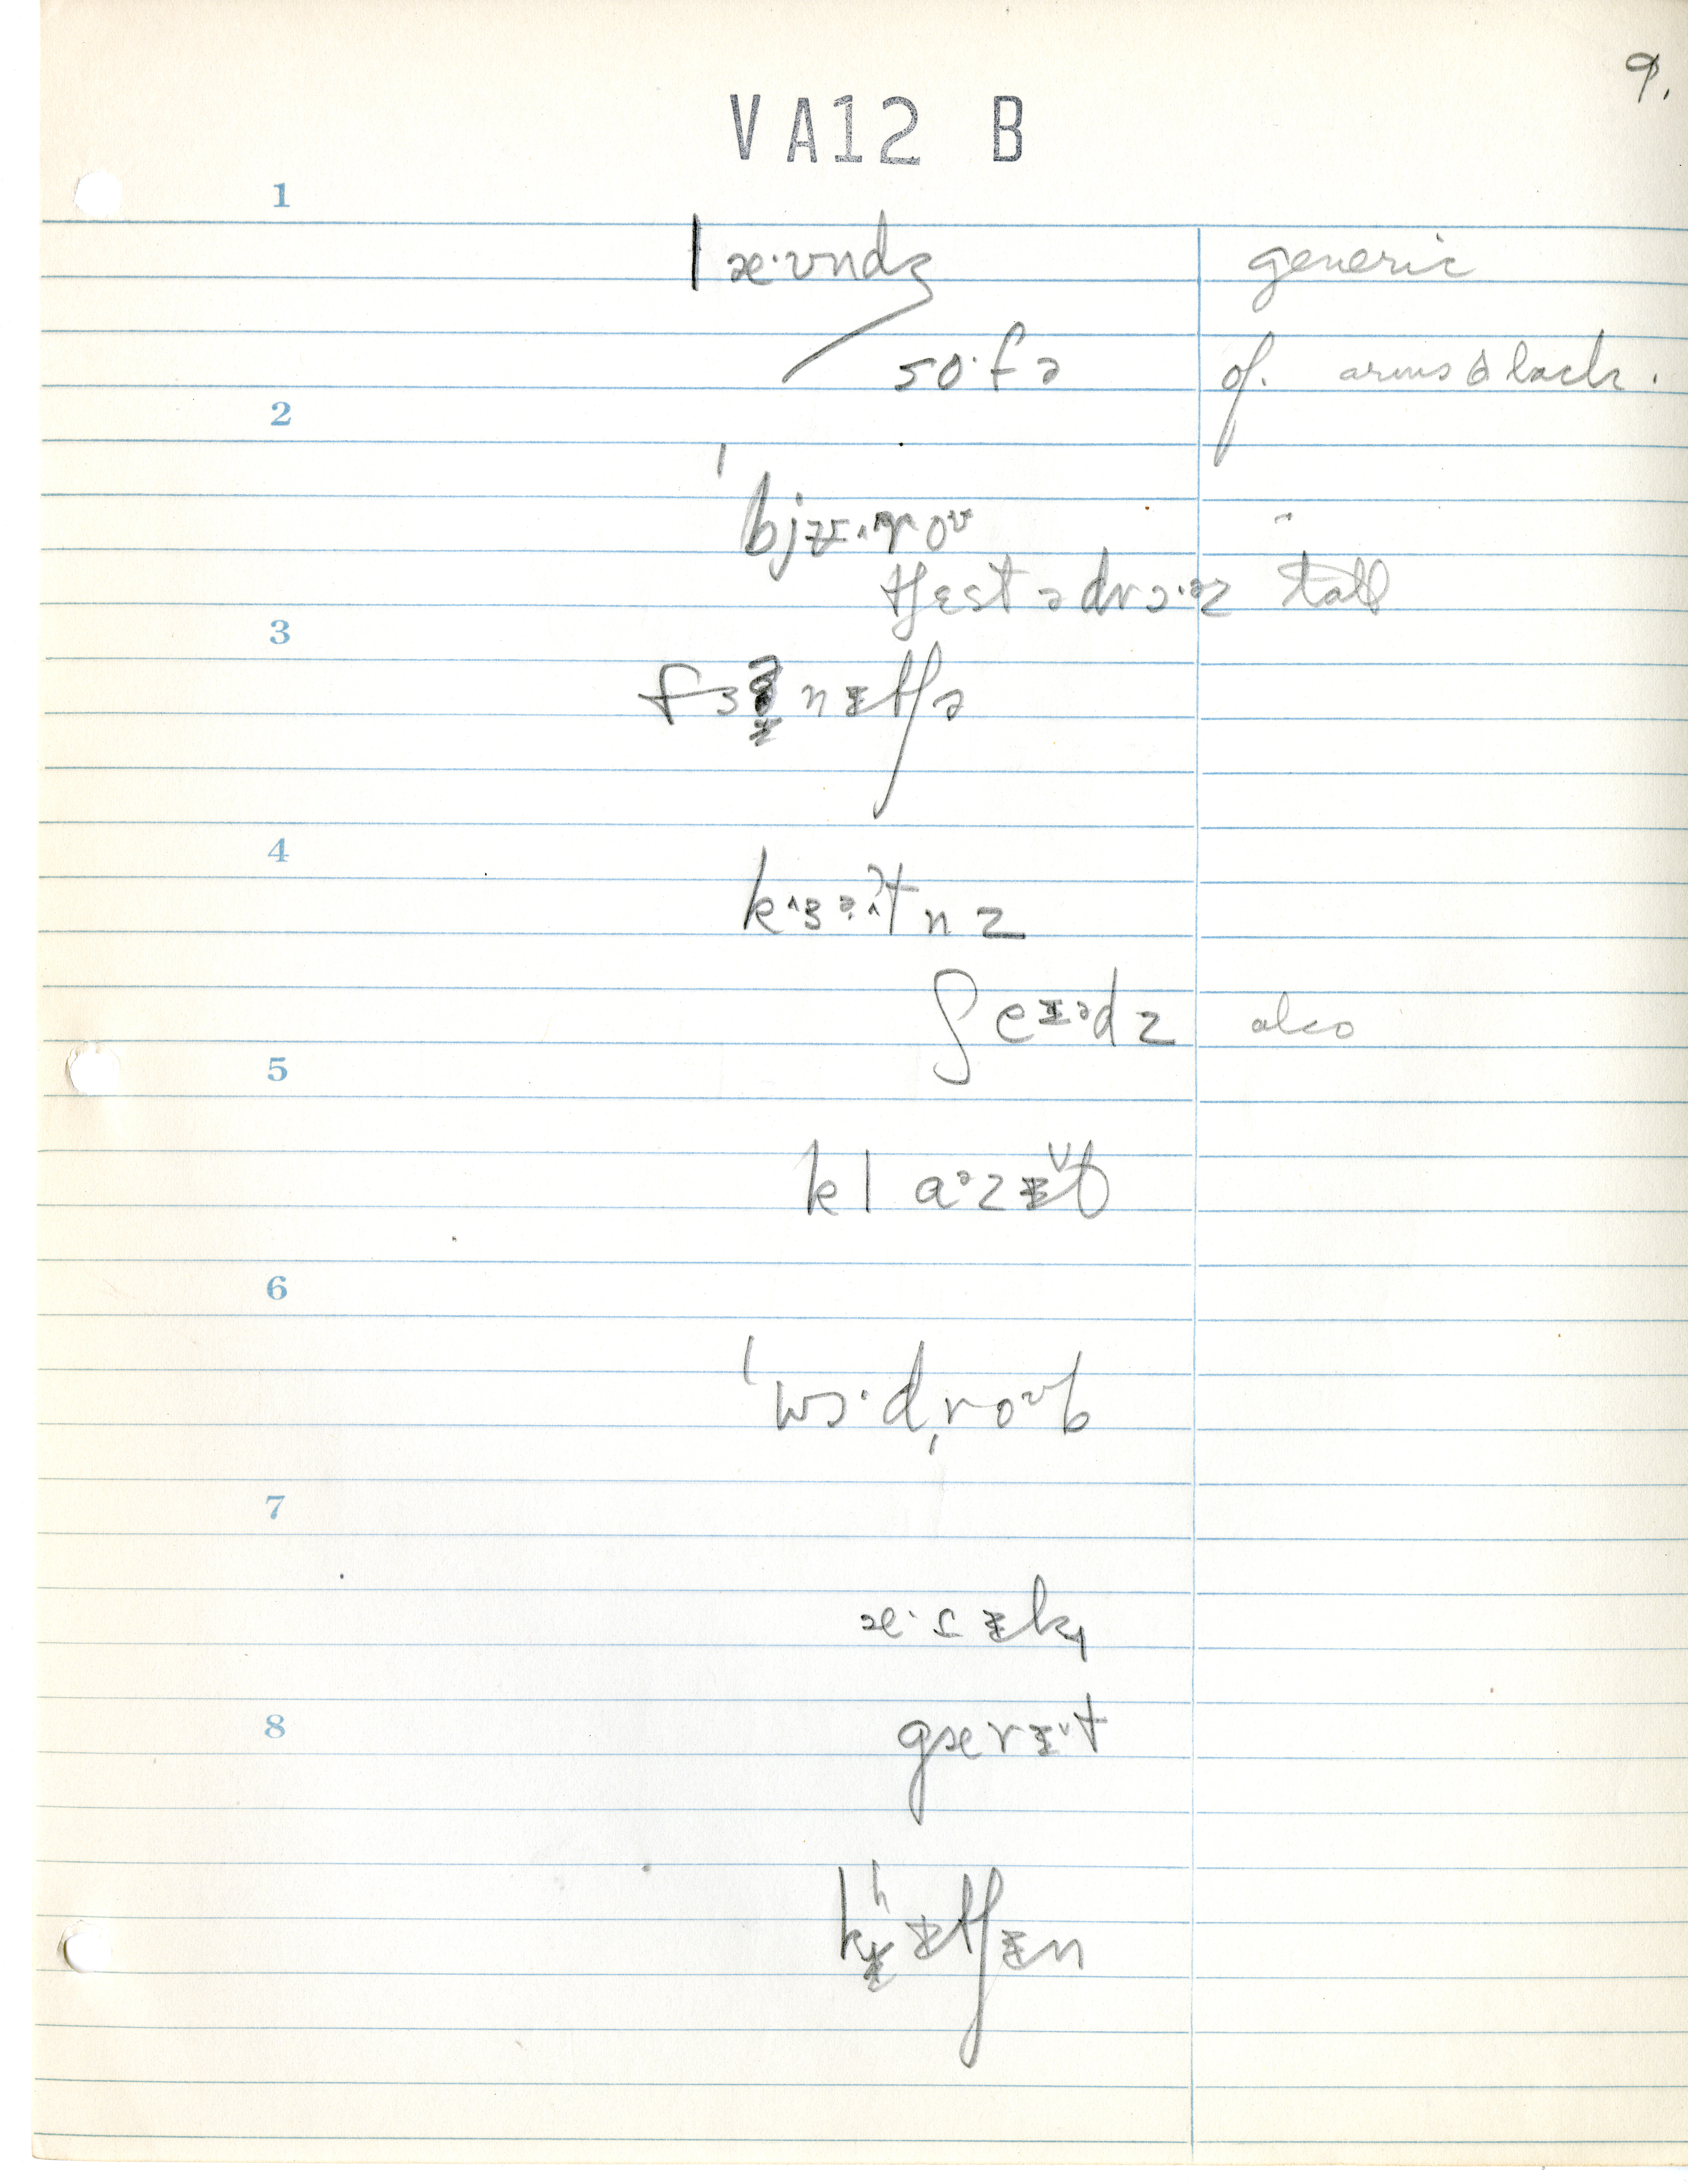 9.
VA12 B
1
læ·ʊndʒ generic
so·fə of. arms & back.
2
ˈbjᵿ·roʊ "
tʃɛst ə drɔ·əz tall
3
fɜnɪtʃə
4
kɜ·tnz
ʃeɪədz also
5
klɑ·zɪt
6
ˈwɔ·dˌroʊb
7
æ·tɪk
8
gærɪt
kʰɪtʃɪn